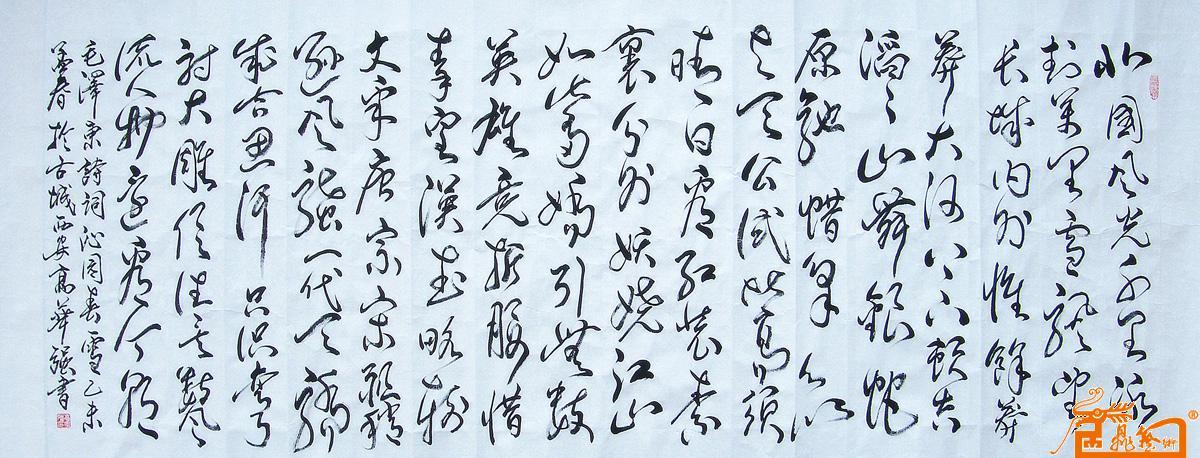 北國风光千里冰
封萬里雪飘望
长城内外惟餘莽
莽大河上下頓失
滔滔山舞銀蛇
原馳蜡象欲
与天公試比高須
晴日看红装素
裹分外妖娆江山
如此多嬌引無數
英雄竞折腰惜
秦皇漢武略输
文采唐宗宋祖稍
逊风骚一代天骄
成吉思汗只识弯弓
射大雕俱往矣數风
流人物還看今朝
毛澤東詩詞沁园春雪乙未
孟春於古城西安高華强書